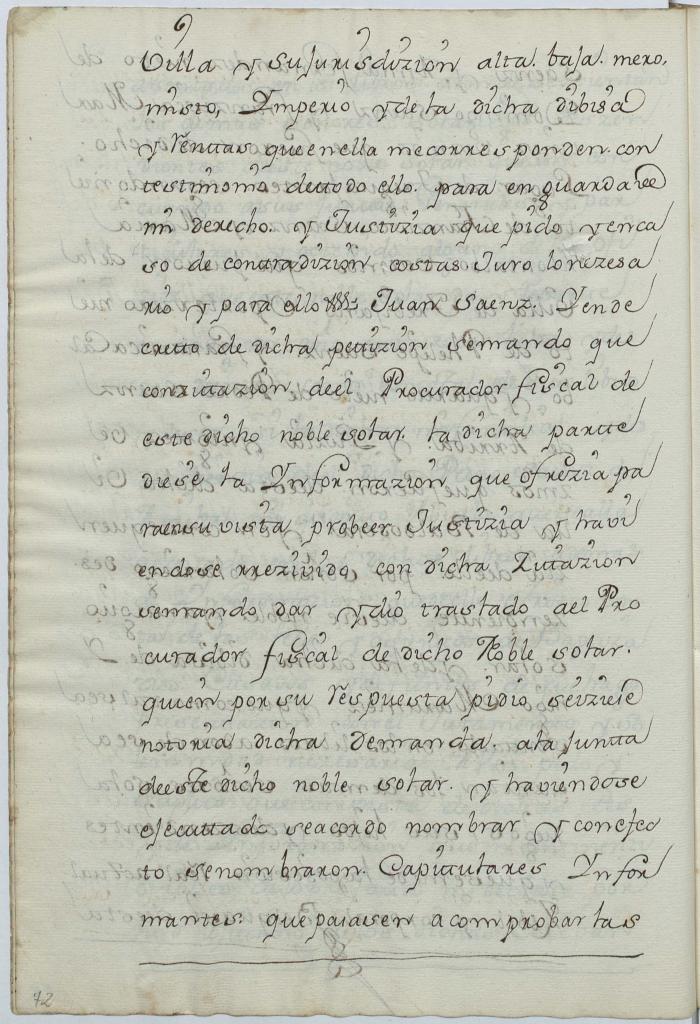 Villa y su Jurisdizion alta. baja. mero,
misto, Ymperio y de la dicha dibisa
y Renttas que en ella me corresponden. con
testimonio de ttodo ello. para en guarda de
mi derecho. y Justizia que pido y en ca
so de contradizion costas Juro lo nezesa
rio y para ello Juan Saenz. Y en de
cretto de dicha pettizion se mando que
con zittazion de el Procurador fiscal de
este dicho noble solar. la dicha partte
diese la Ynformazion que ofrezia pa
ra en su vista probeer Justizia y havi
endose rrezivido con dicha Zitazion
se mando dar y dio traslado al Pro
curador fiscal de dicho Noble solar.
quien por su Respuesta pidio se iziese
notoria dicha Demanda. a la Juntta
de este dicho noble solar. y haviendose
ejecuttado se acordo nombrar y con efec
to se nombraron. Capittulares Ynfor
mantes. que pasasen a comprobar las
72